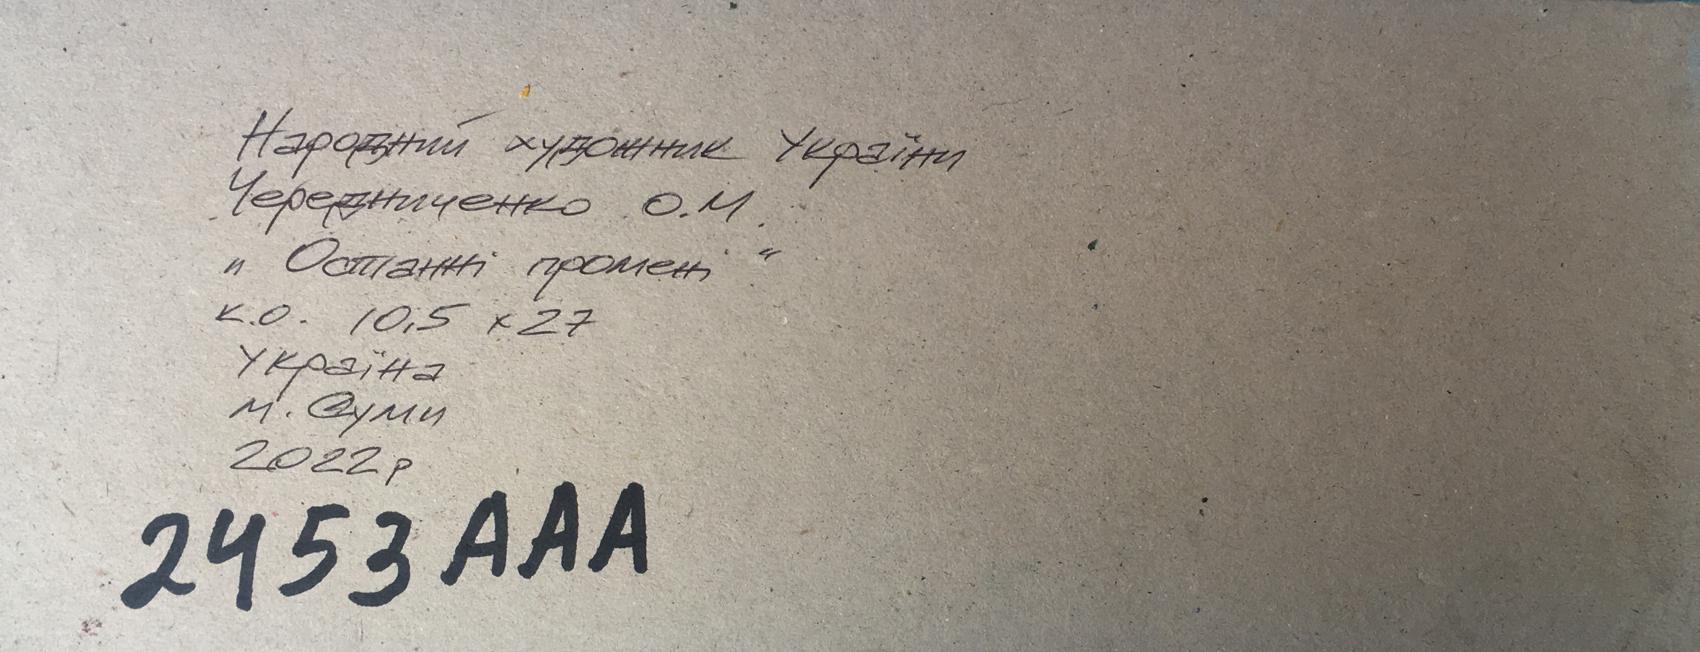 Народний художник України
Чередниченко О.М.
„ Останні промені “
к.о. 10,5 x 27
Україна
м. Суми
2022р
2453 AAA